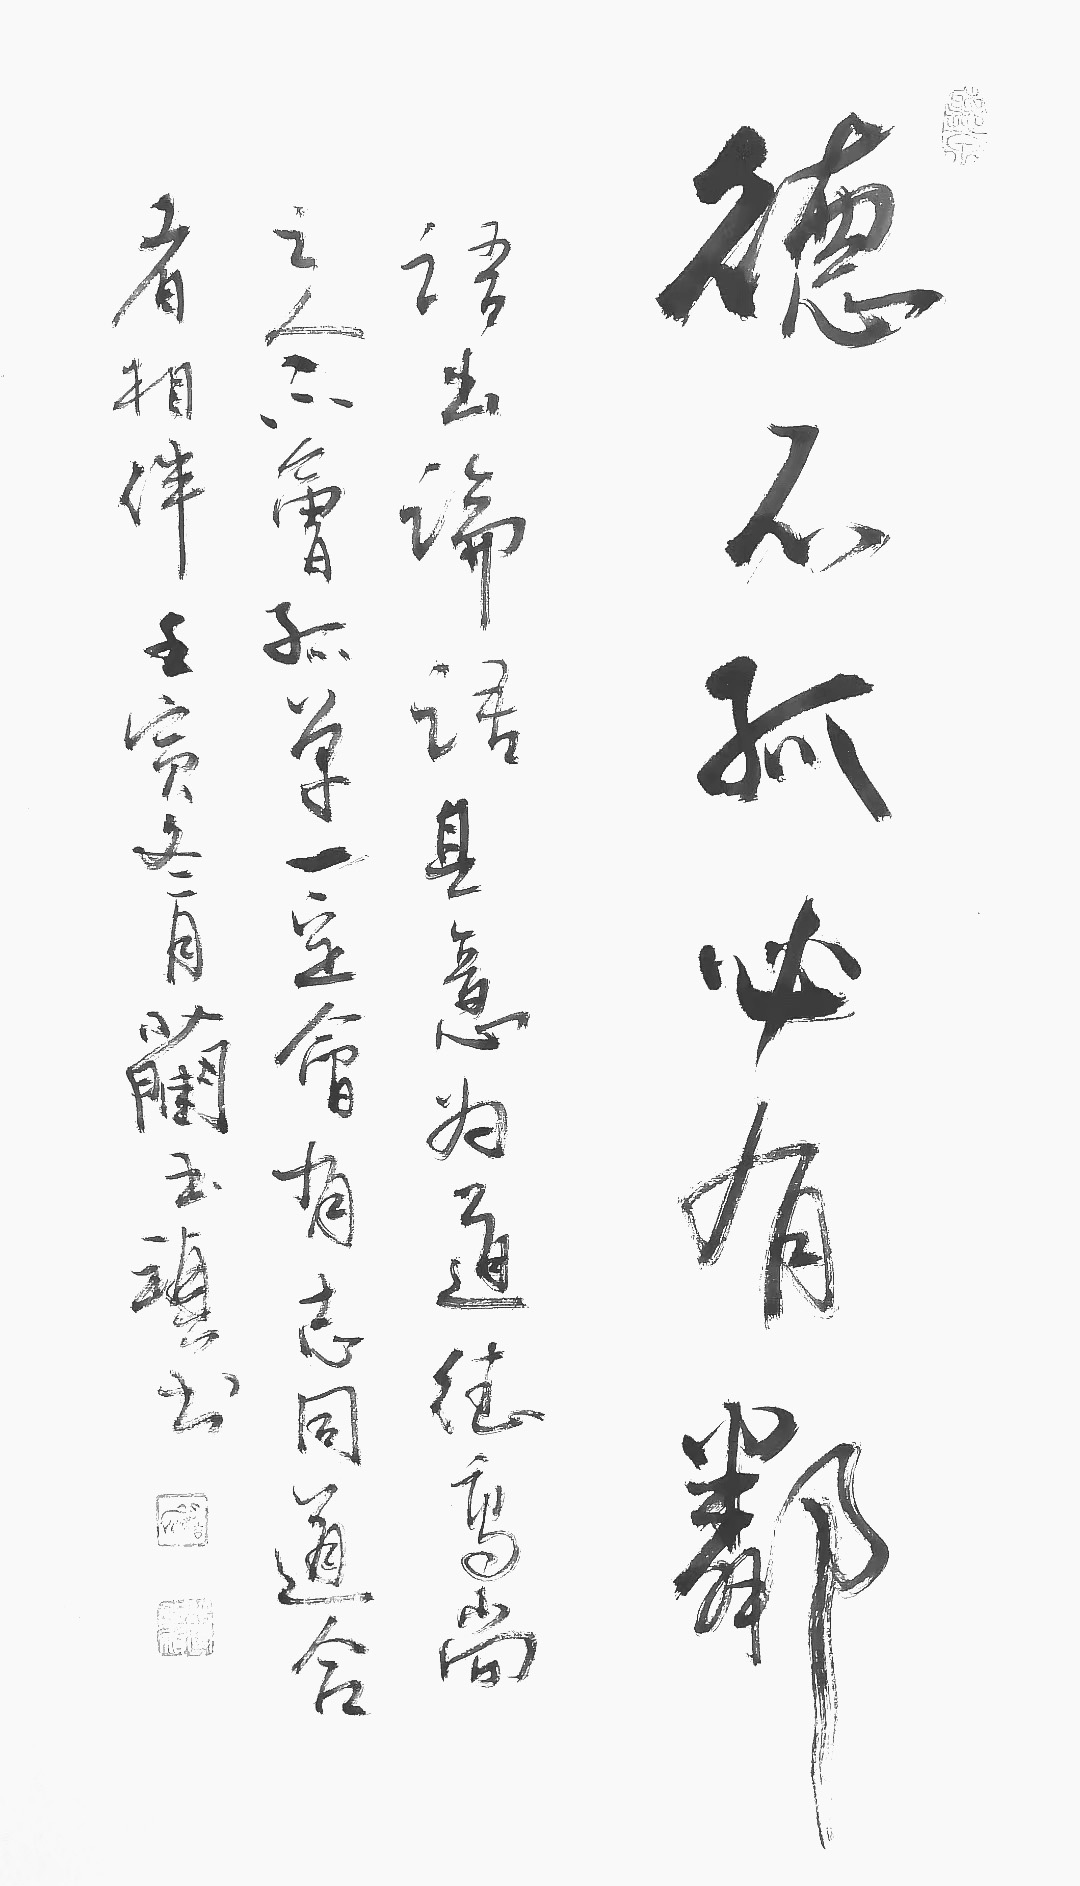 德不孤必有鄰
語出論語其意为道德高尚
之人不會孤單一定會有志同道合
者相伴 壬寅冬月藺玉书